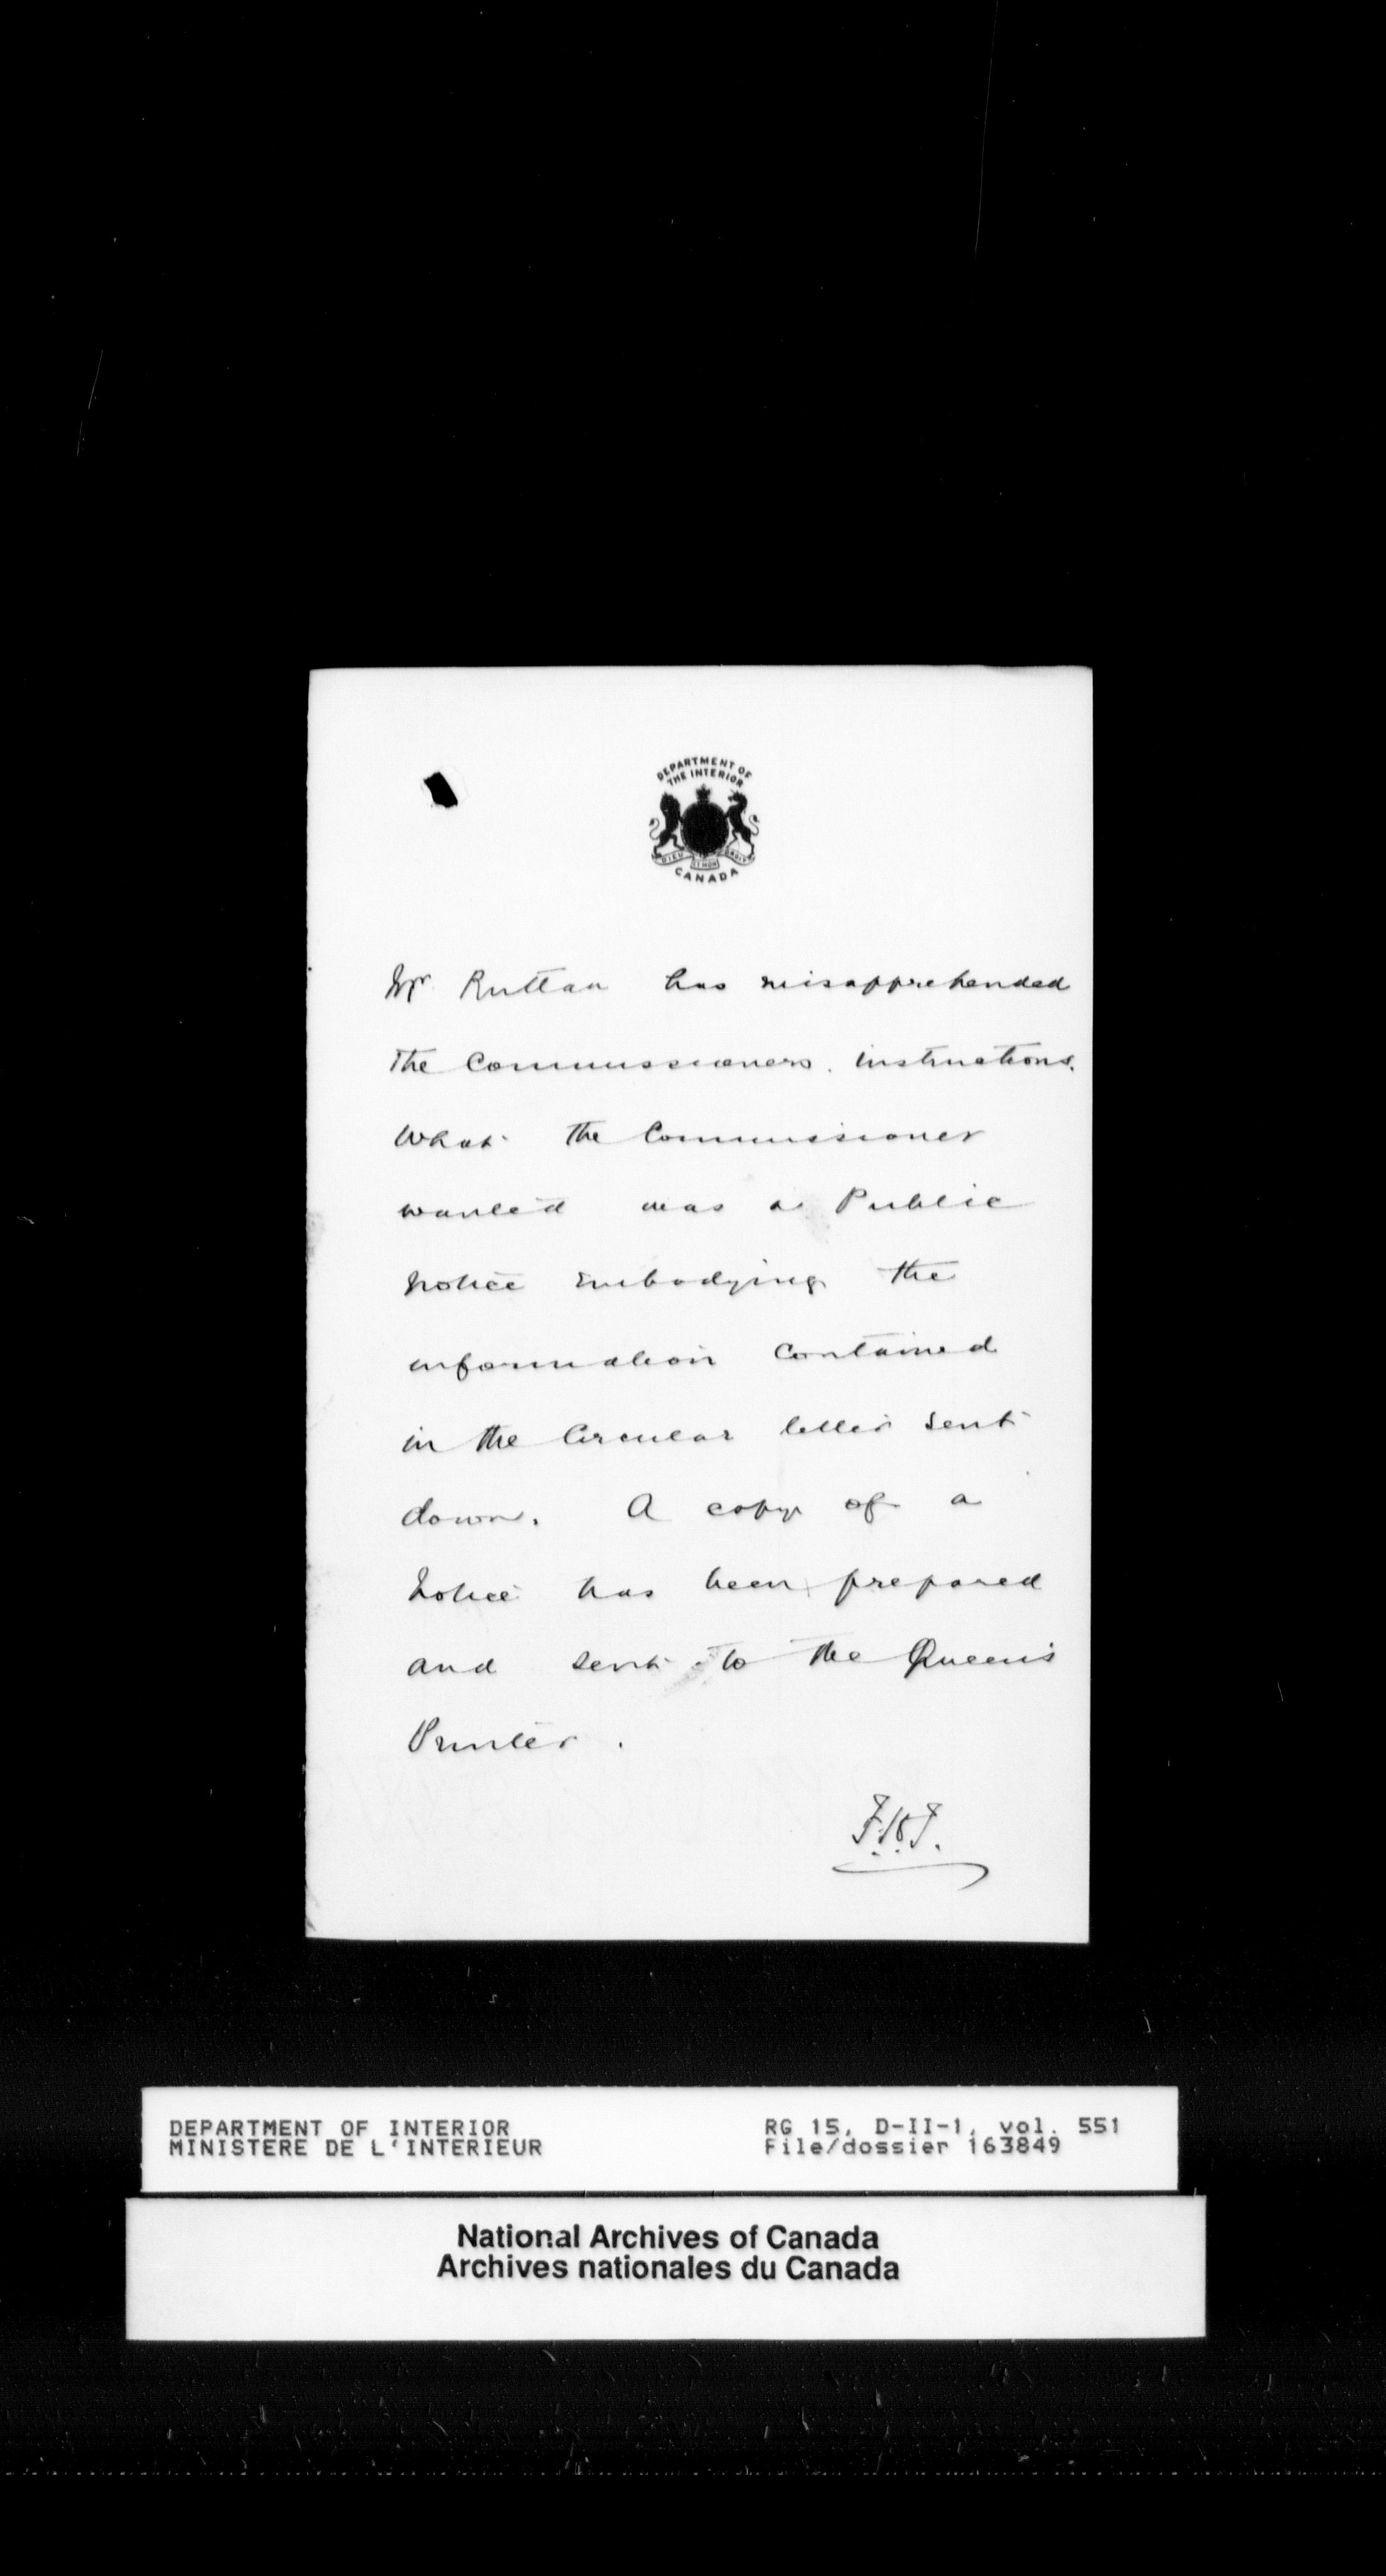 DEPARTMENT OF
THE INTERIOR
DIEU ET MON DROIT
CANADA
Mr Ruttan has misapprehended
the Commissioners. instructions.
What the Commissioner
wanted was a Public
notice embodying the
information contained
in the Circular letter sent
down. A copy of a
notice has been prepared
and sent to the Queen's
Printer.
DEPARTMENT OF INTERIOR
MINISTERE DE L'INTERIEUR
RG 15, D-II-1, vol. 551
File/dossier 163849
National Archives of Canada
Archives nationales du Canada